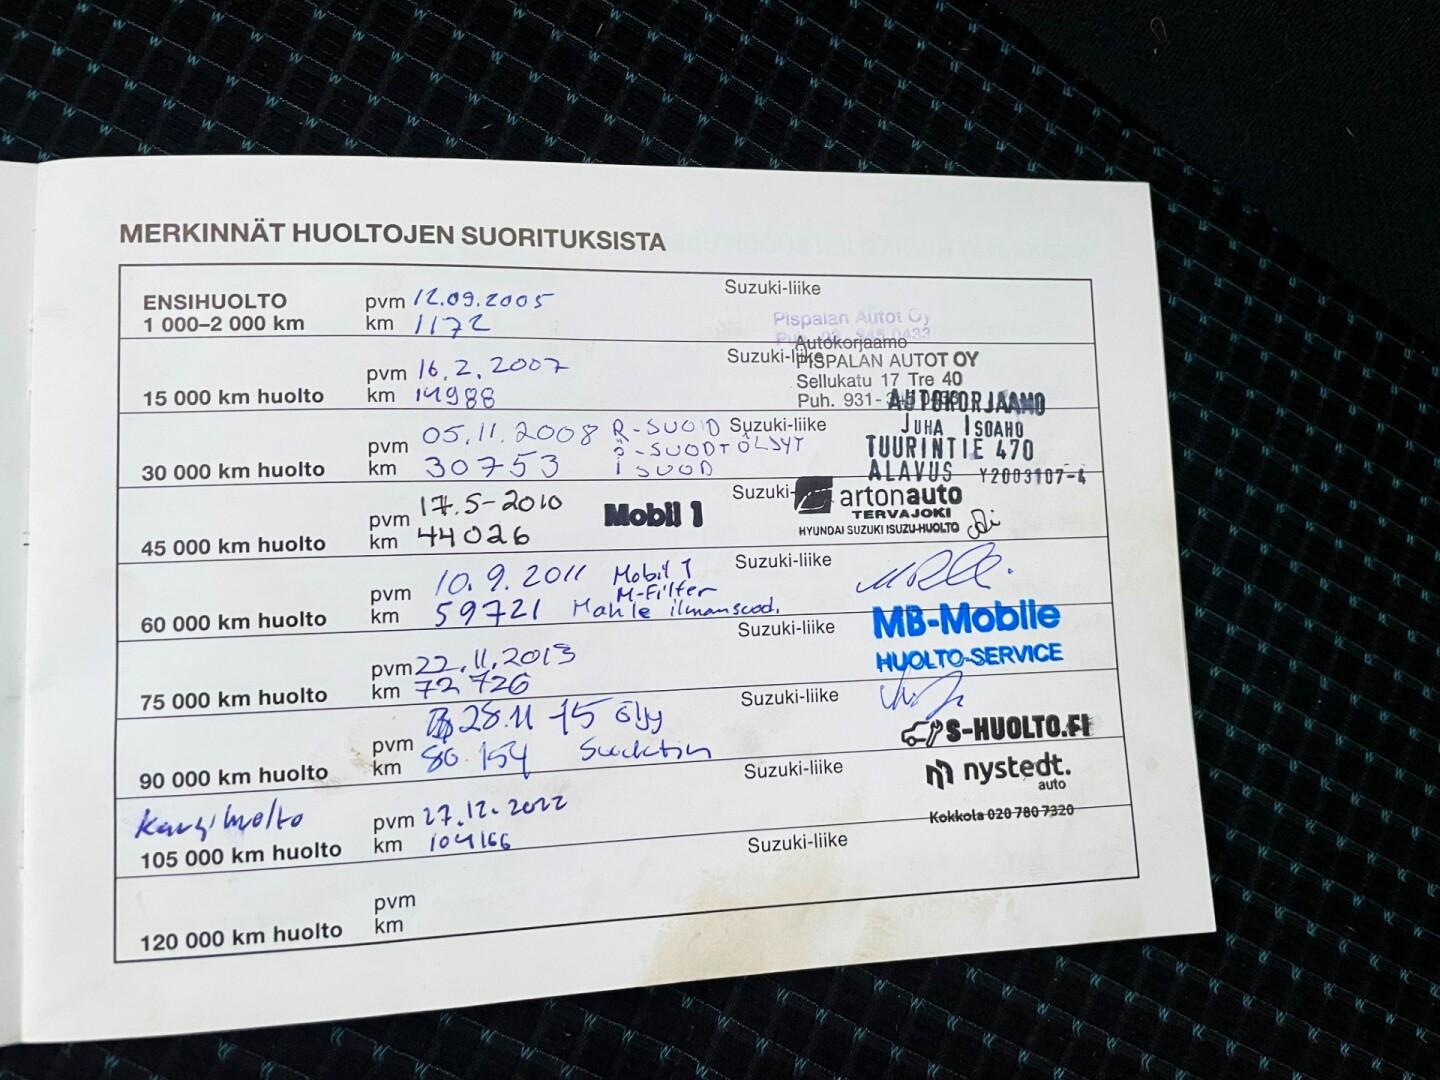 MERKINNÄT HUOLTOJEN SUORITUKSISTA
ENSIHUOLTO
1 000–2 000 km
pvm 12.09.2005
km 1172
Suzuki-liike
Pispalan Autot Oy
15 000 km huolto
pvm 16.2.2007
km 14988
Suzuki-liike
Autokorjaamo
PISPALAN AUTOT OY
Sellukatu 17 Tre 40
Puh. 931-
30 000 km huolto
pvm 05.11.2008
km 30753
R-SUOD
Ö-SUODT ÖLJYT
I SUOD
Suzuki-liike
AUTOKORJAAMO
JUHA ISOAHO
TUURINTIE 470
ALAVUS Y2003107-4
45 000 km huolto
pvm 17.5-2010
km 44026
Mobil 1
Suzuki-
artonauto
TERVAJOKI
HYUNDAI SUZUKI ISUZU-HUOLTO
60 000 km huolto
pvm 10.9.2011
km 59721
Mobil 1
M-Filter
Mahle ilmansuod.
Suzuki-liike
75 000 km huolto
pvm 22.11.2013
km 72726
Suzuki-liike
MB-Mobile
HUOLTO-SERVICE
90 000 km huolto
pvm 28.11 -15 öljy
km 80.154
Suzuki-liike
S-HUOLTO.FI
105 000 km huolto
pvm 27.12.2022
km 104166
Suzuki-liike
nystedt.
auto
Kokkola 020 780 7320
120 000 km huolto
pvm
km
Suzuki-liike